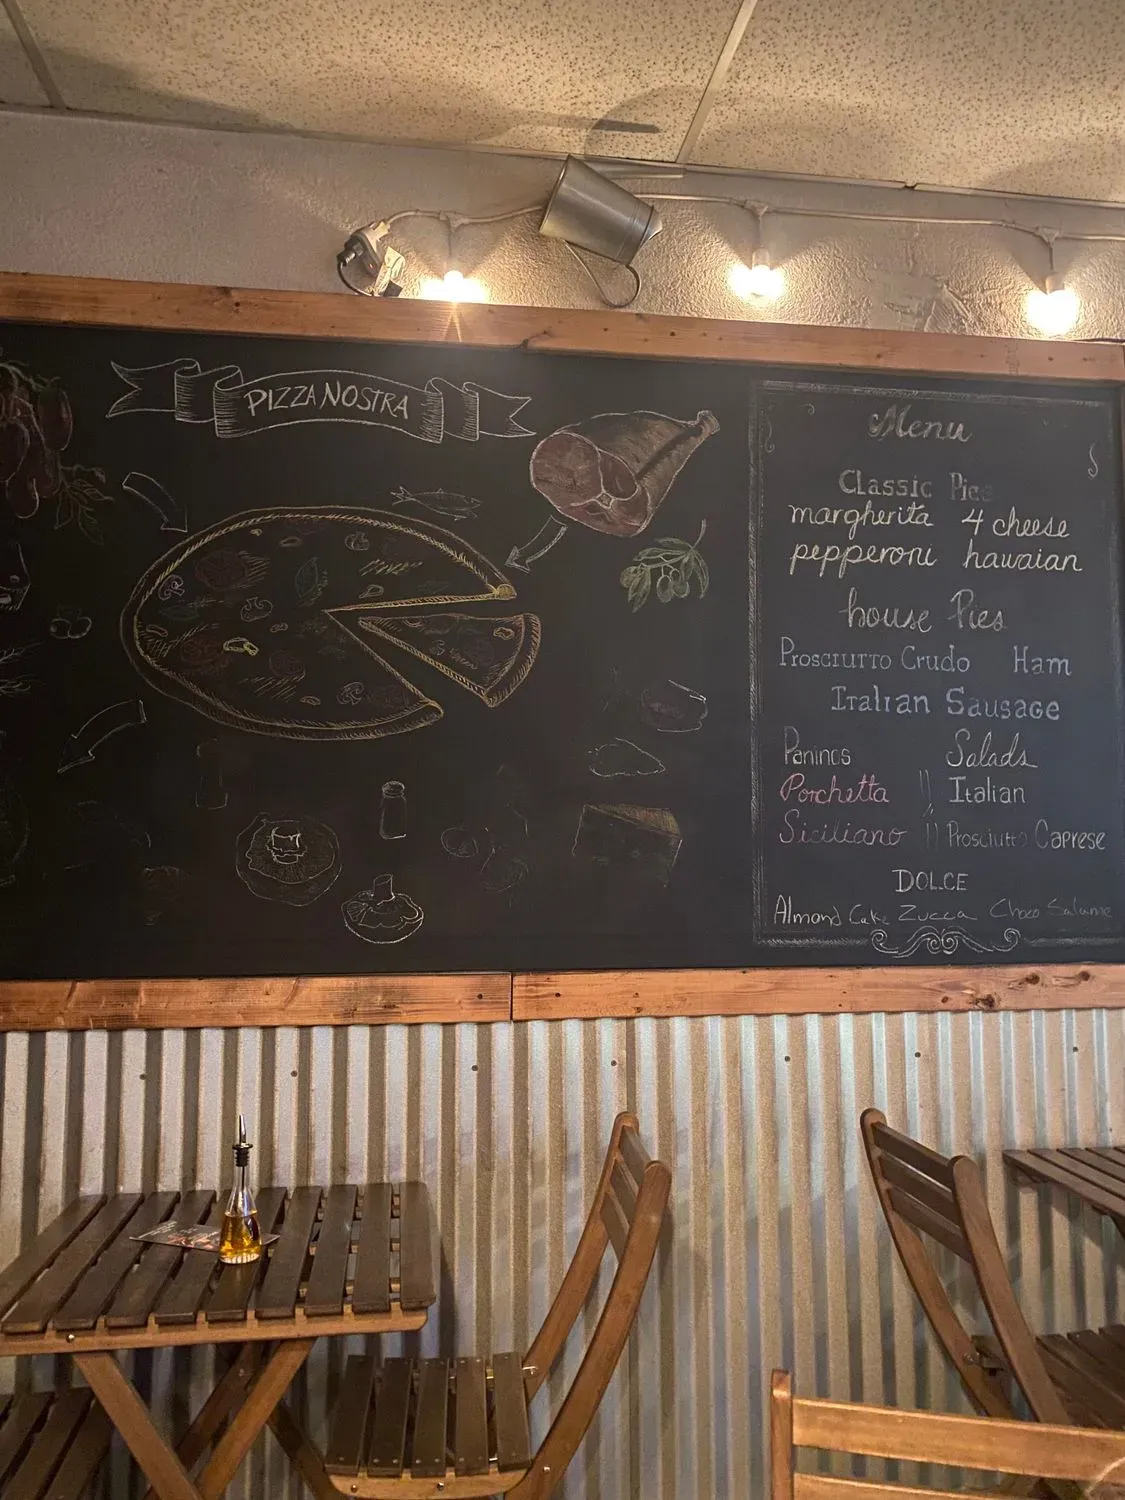 PIZZA NOSTRA
Menu
Classic Pies
margherita 4 cheese
pepperoni hawaian
house Pies
Prosciutto Crudo Ham
Italian Sausage
Paninos Salads
Porchetta || Italian
Siciliano || Prosciutto Caprese
DOLCE
Almond Cake Zucca Choco Salame